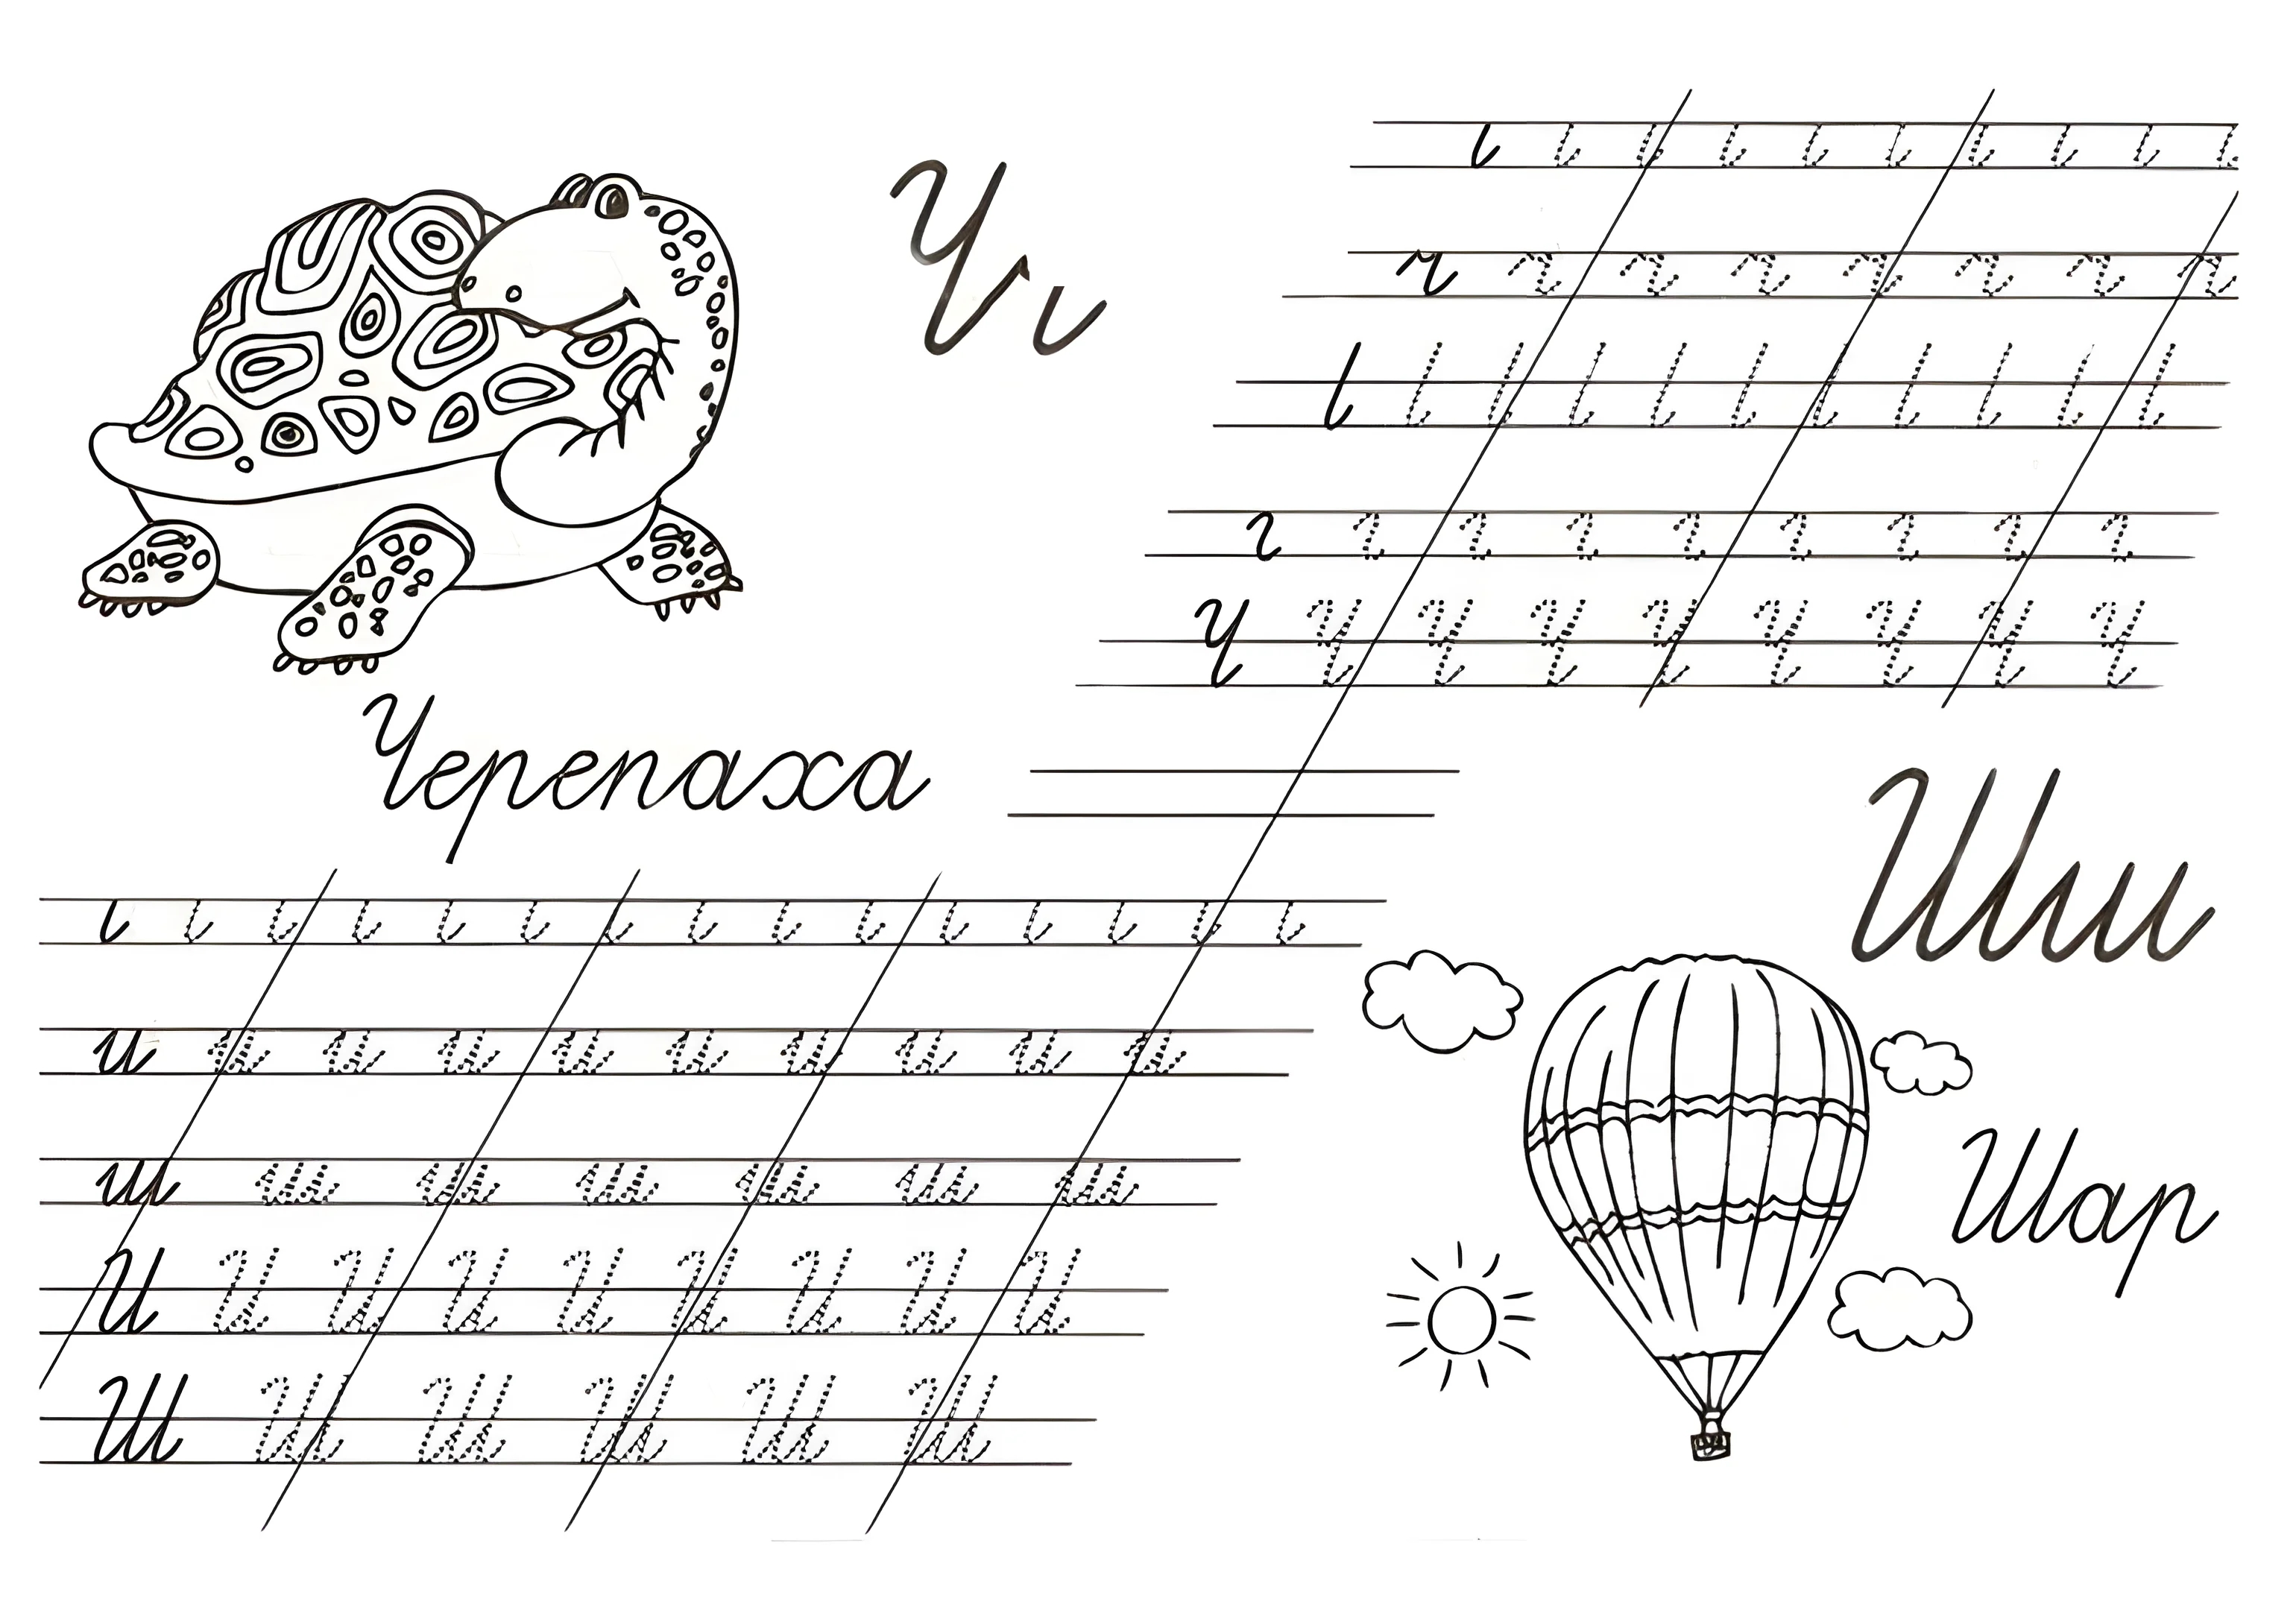 Чч
Черепаха
ч ч ч ч ч ч ч ч
Ч Ч Ч Ч Ч Ч Ч Ч Ч
Шш
Шар
и и и и и и и и и и
ш ш ш ш ш ш ш
И И И И И И И И И
Ш Ш Ш Ш Ш Ш